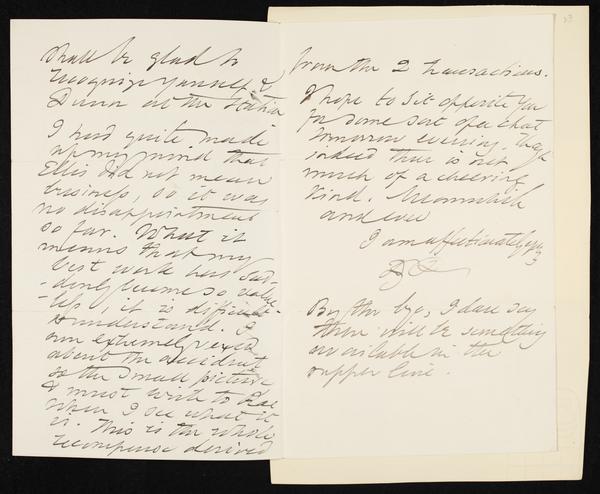 shall be glad to
recognize yourself &
Dunn at the station
I had quite made
up my mind that
Ellis did not mean
business, so it was
no disappointment
so far. What it
means that my
best work has sud-
-denly become so value-
-less, it is difficult
to understand. I
am extremely vexed
about the accident
to the small picture
& must write to
when I see what it
is. This is the whole
recompense derived
from the 2 transactions.
I hope to sit opposite you
for some sort of a chat
tomorrow evening, though
indeed there is not
much of a cheering
kind. Meanwhile
and ever
I am affectionately yours
By the bye, I dare say
there will be something
available in the
supper line.
23